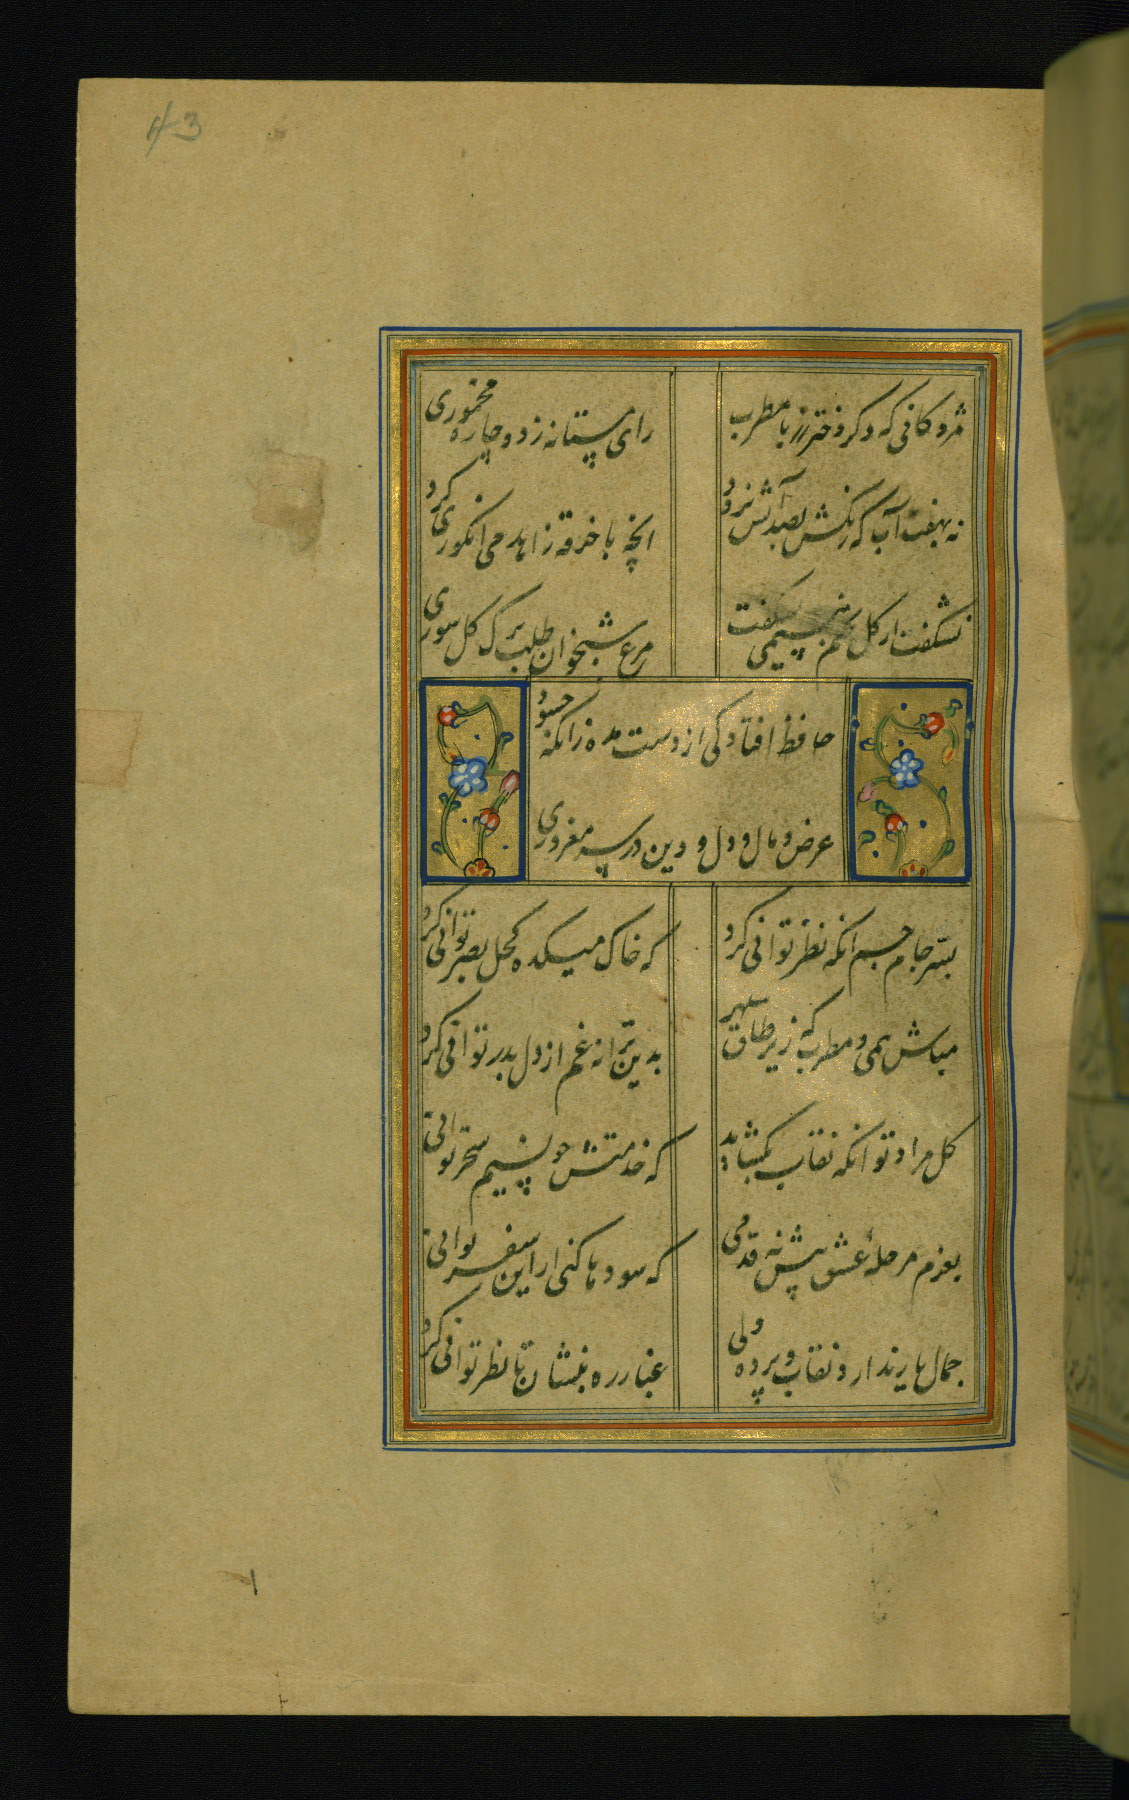 43
مژدگانی که دگر دختر رز با مطرب
رای مستانه زد و چاره مخموری کرد
نه بهفت آب که رنگش بصد آتش نرود
انچه با خرقه زاهد می انگوری کرد
نشکفت از کل نسیمی
مرغ شبخوان طلب برک کل سوری
حافظ افتادگی از دست مده زانکه حسود
عرض و مال و دل و دین در سر مغروری
بسر جام جم انکه نظر توانی کرد
که خاک میکده کحل بصر توانی کرد
مباش بی می و مطرب که زیر طاق سپهر
بدین ترانه غم از دل بدر توانی کرد
کل مراد تو انکه نقاب بکشاید
که خدمتش چو نسیم سحر توانی
بعزم مرحله عشق پیش نه قدمی
که سودها کنی ار این سفر توانی
جمال یار ندارد نقاب و پرده ولی
غبار ره بنشان تا نظر توانی کرد